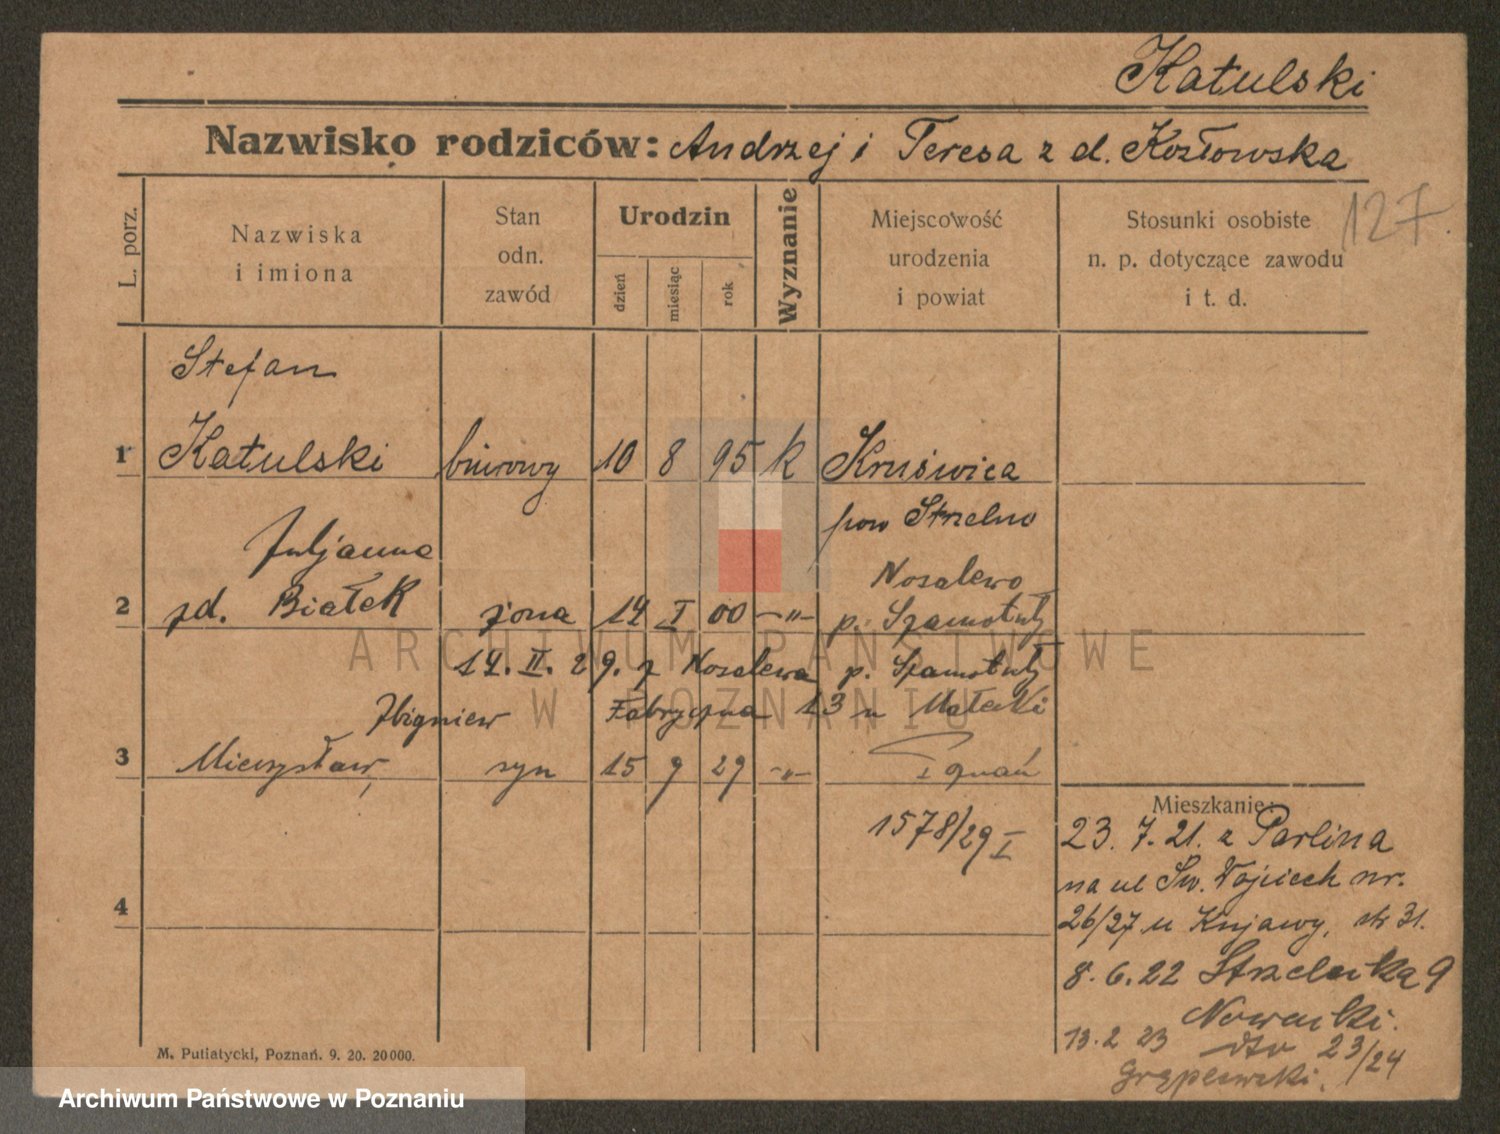 Katulski
Nazwisko rodziców: Andrzej i Teresa z d. Kozłowska
127
L. porz.
Nazwiska
i imiona
Stan
odn.
zawód
Urodzin
dzień
miesiąc
rok
Wyznanie
Miejscowość
urodzenia
i powiat
Stosunki osobiste
n. p. dotyczące zawodu
i t. d.
Stefan
1 Katulski biurowy 10 8 95 k Kruświca
pow Strzelno
Juljanna
Nosalewo
2 zd. Białek żona 14 I 00 -"- p. Szamotuły
14. II. 29. z Nosalewa p. Szamotuły
Zbigniew Fabryczna 13 u Małecki
3 Mieczysław, syn 15 9 29 -"- Poznań
Mieszkanie:
1578/29 I
23. 7. 21. z Parlina
na ul Św. Wojciech nr.
4
26/27 u Kujawy, str 31.
8. 6. 22 Strzelecka 9
Nowacki.
13. 2 23 dto 23/24
M. Putiatycki, Poznań. 9. 20. 20000.
ARCHIWUM PAŃSTWOWE
W POZNANIU
Archiwum Państwowe w Poznaniu